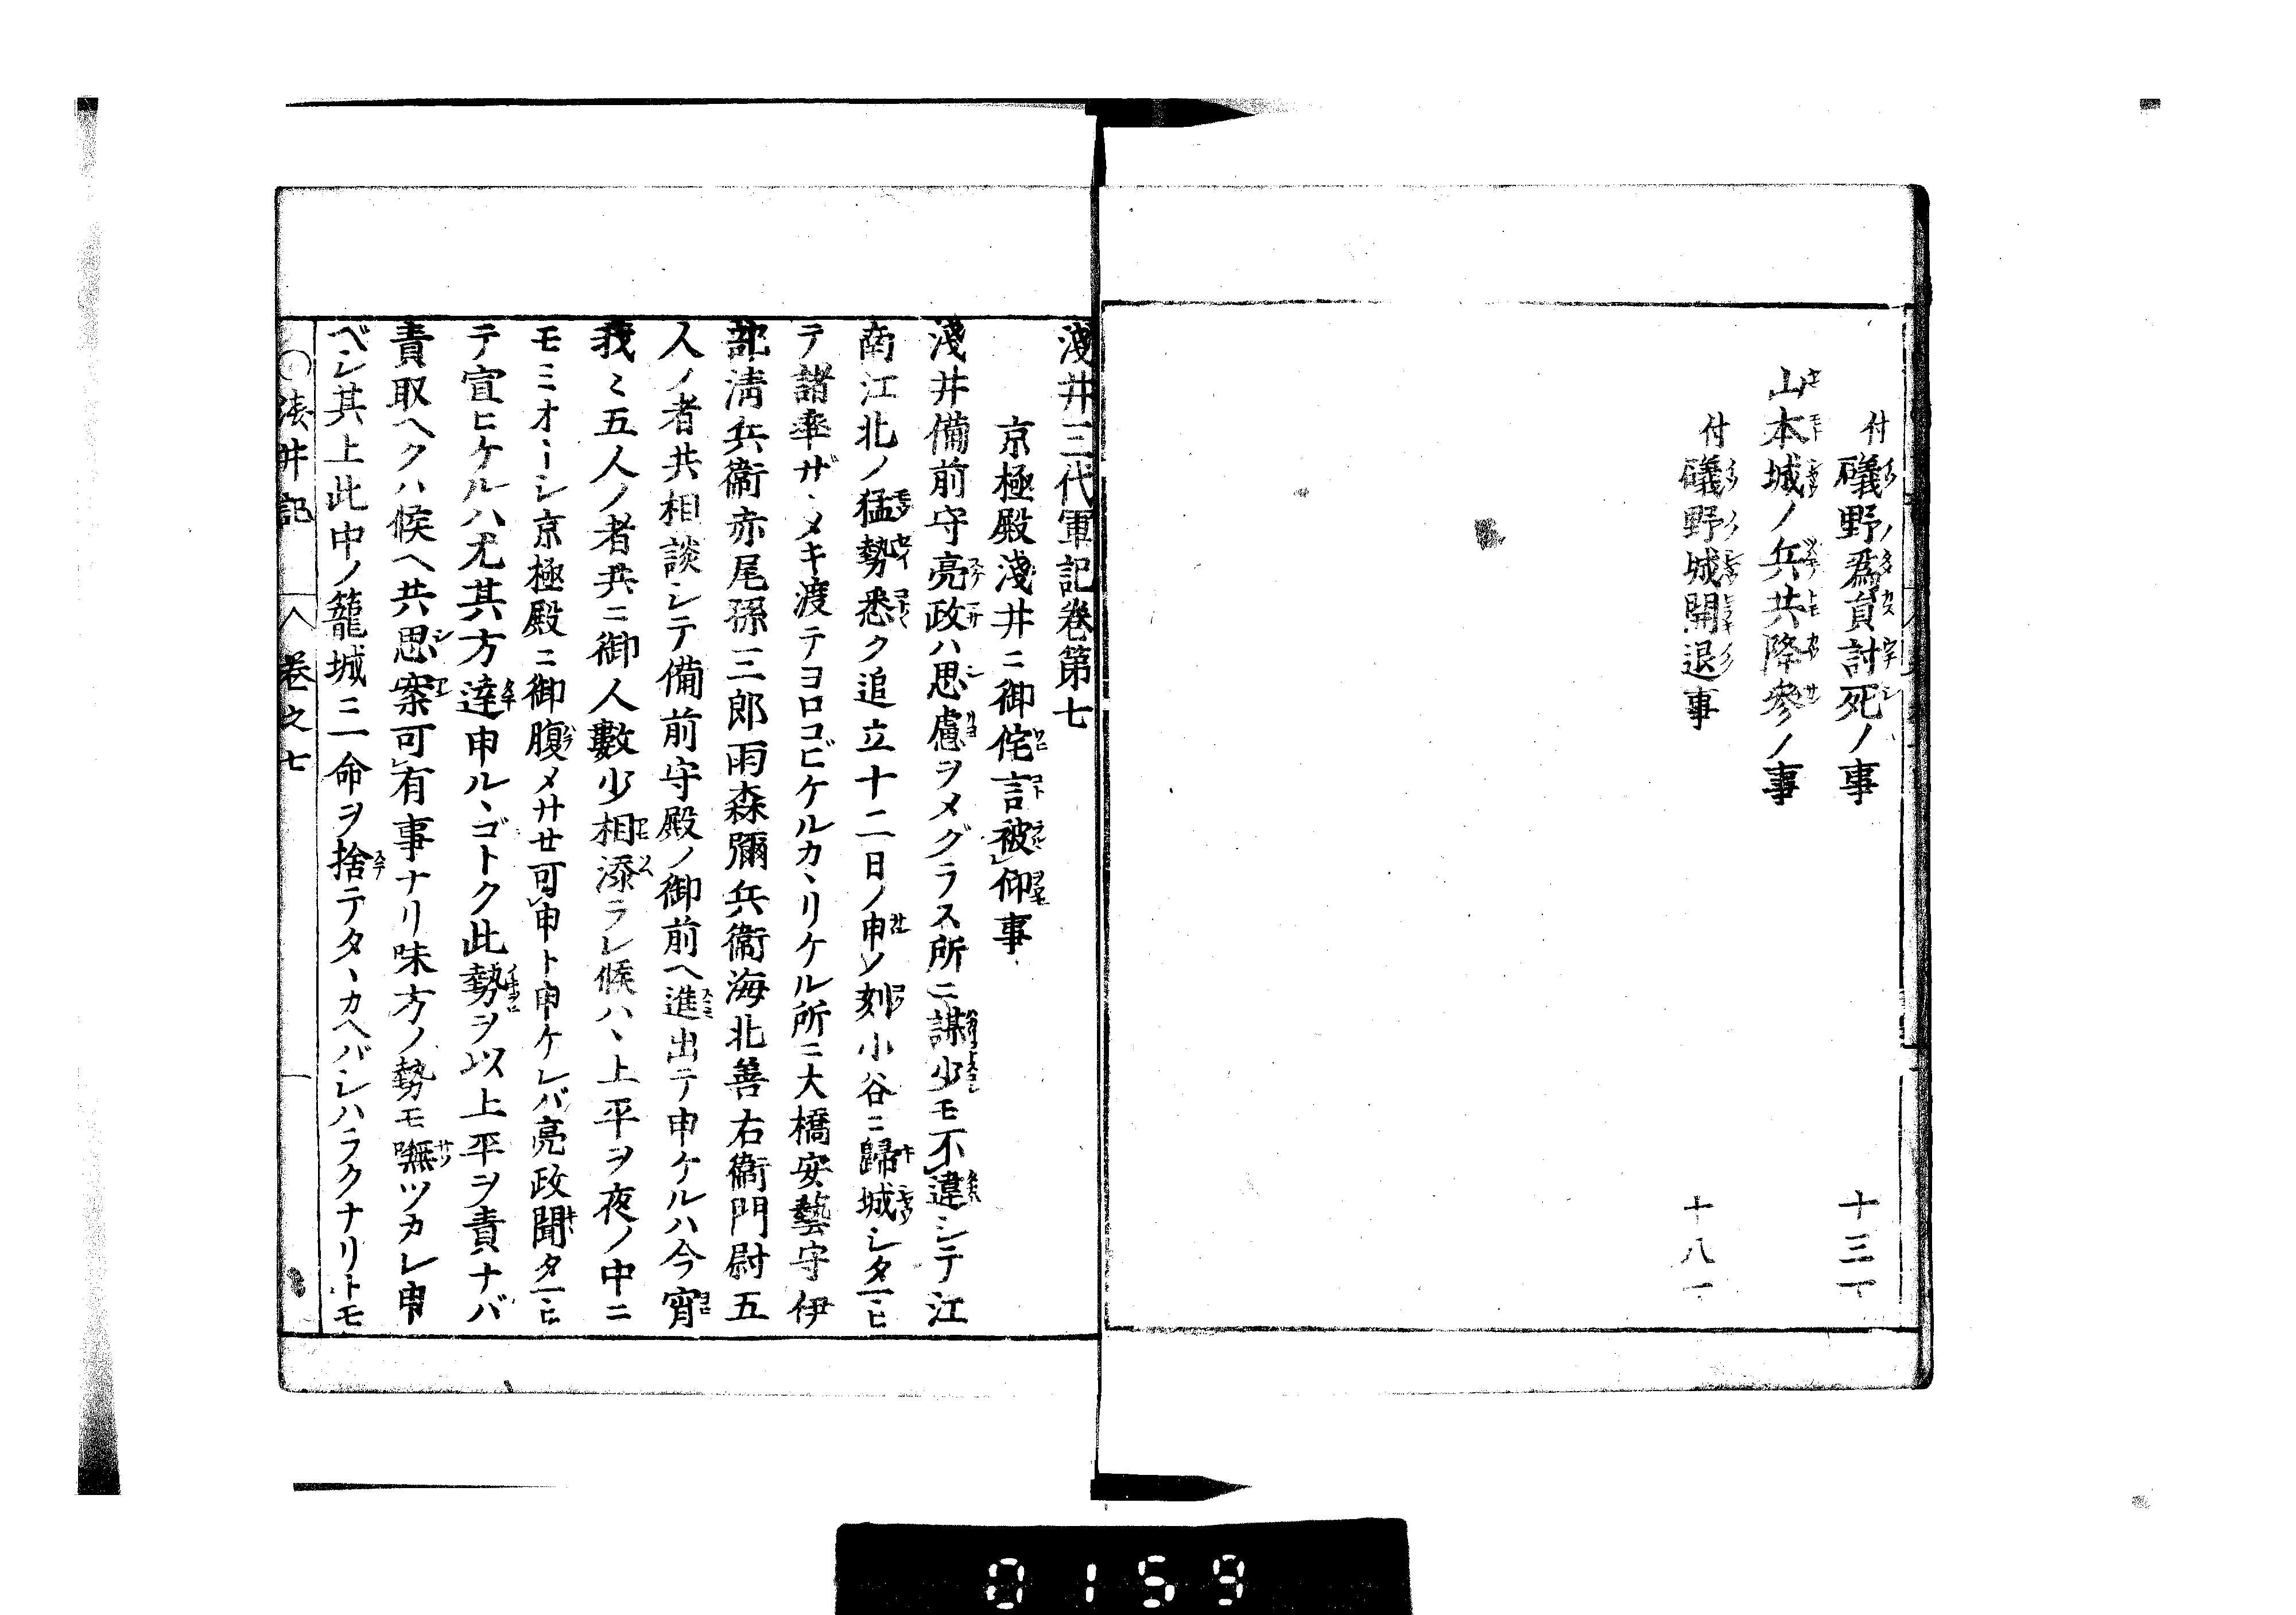 付礒野爲員討死ノ事 十三丁
山本城ノ兵共降參ノ事
付礒野城開退事 十八丁
淺井三代軍記卷第七
京極殿淺井ニ御侘言被仰事
淺井備前守亮政ハ思慮ヲメグラス所ニ謀少モ不違シテ江
南江北ノ猛勢悉ク追立十二日ノ申ノ刻小谷ニ歸城シタマヒ
テ諸率ザヽメキ渡テヨロコビケルカヽリケル所ニ大橋安藝守伊
部清兵衞赤尾孫三郎雨森彌兵衞海北善右衞門尉五
人ノ者共相談シテ備前守殿ノ御前ヘ進出テ申ケルハ今宵
我ミ五人ノ者共ニ御人數少相添ラレ候ハヽ上平ヲ夜ノ中ニ
モミオトシ京極殿ニ御腹メサせ可申ト申ケレバ亮政聞タマヒ
テ宣ヒケルハ尤其方達申ルヽゴトク此勢ヲ以上平ヲ責ナバ
責取ヘクハ候ヘ共思案可有事ナリ味方ノ勢モ嘸ツカレ申
ベシ其上此中ノ籠城ニ一命ヲ捨テタヽカヘバシハラクナリトモ
淺井記 卷之七 一
0159